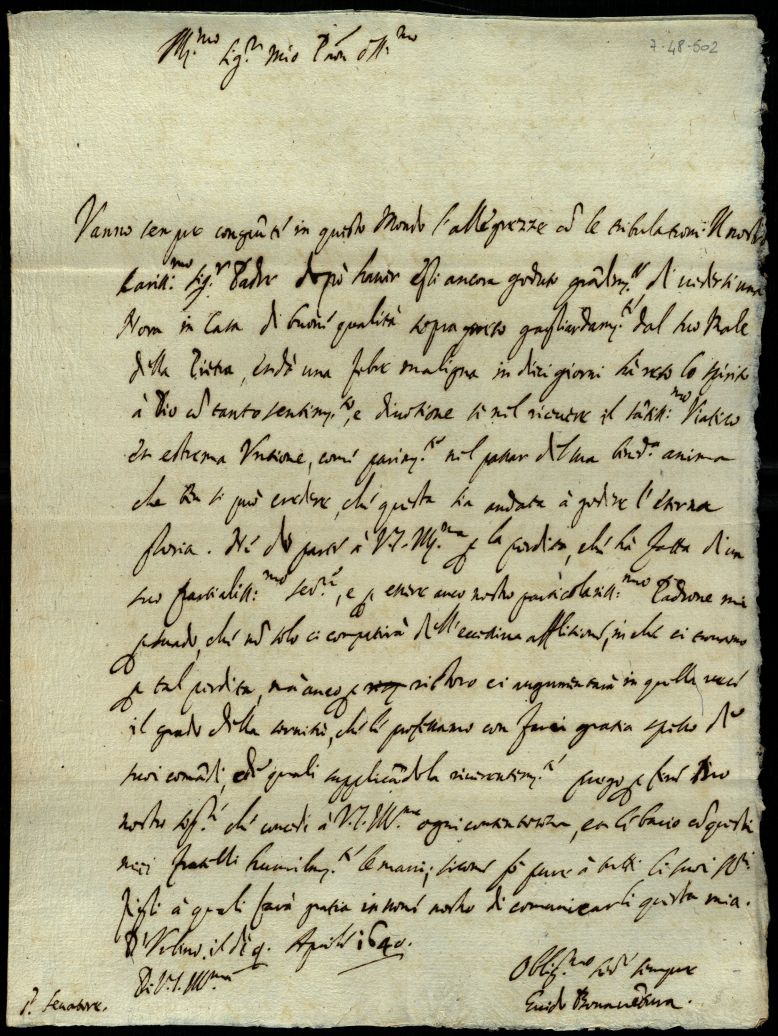 7-48-602
Ill.mo Sig.r mio P̃ron oss.mo
Vanno sempre congiũti in questo Mondo l'allegrezze cõ le tribulationi. Il nostro
Cariss.mo Sig.r Padre dopò haver egli ancora goduto grãdem.te di vedersi una
Nora in Casa di buone qualità sopragiunto gagliardam.te dal suo Male
della Pietra, et da una febre maligna in dieci giorni hà reso lo spirito
à Dio cõ tanto sentim.to, e divotione sì nel ricevere il Sãtiss.mo Viatico
et estrema Untione, come parim.te nel passar di sua bened.a anima
che ben si può credere, che questa sia andata à godere l'eterna
gloria. Ne dò parte à V.S. Ill.ma p la perdita, che hà fatta di un
suo partialiss.mo ser.re, e p essere anco nostro particolariss.mo Padrone mi
persuado, che nõ solo ci compatirà dell'eccessiva afflitione, in che ci troviamo
p tal perdita, mà anco p ristoro ci augumenterà in quella vece
il grado della servitù, che le professiamo con farci gratia spesso de
suoi comãdi, de quali supplicãdola riverentem.te prego p fine Dio
nostro Sig.re che conceda à V.S. Ill.ma ogni contentezza, e le bacio cõ questi
miei fratelli humilm.te le mani; sicome fò pure à tutti li suoi SS.ri
figli à quali farà gratia in nome nostro di comunicarli questa mia.
D'Urbino il dì 9. Aprile 1640.
Di V.S. Ill.ma
Oblig.mo ser.re sempre
Guido Bonaventura.
S.r Senatore.